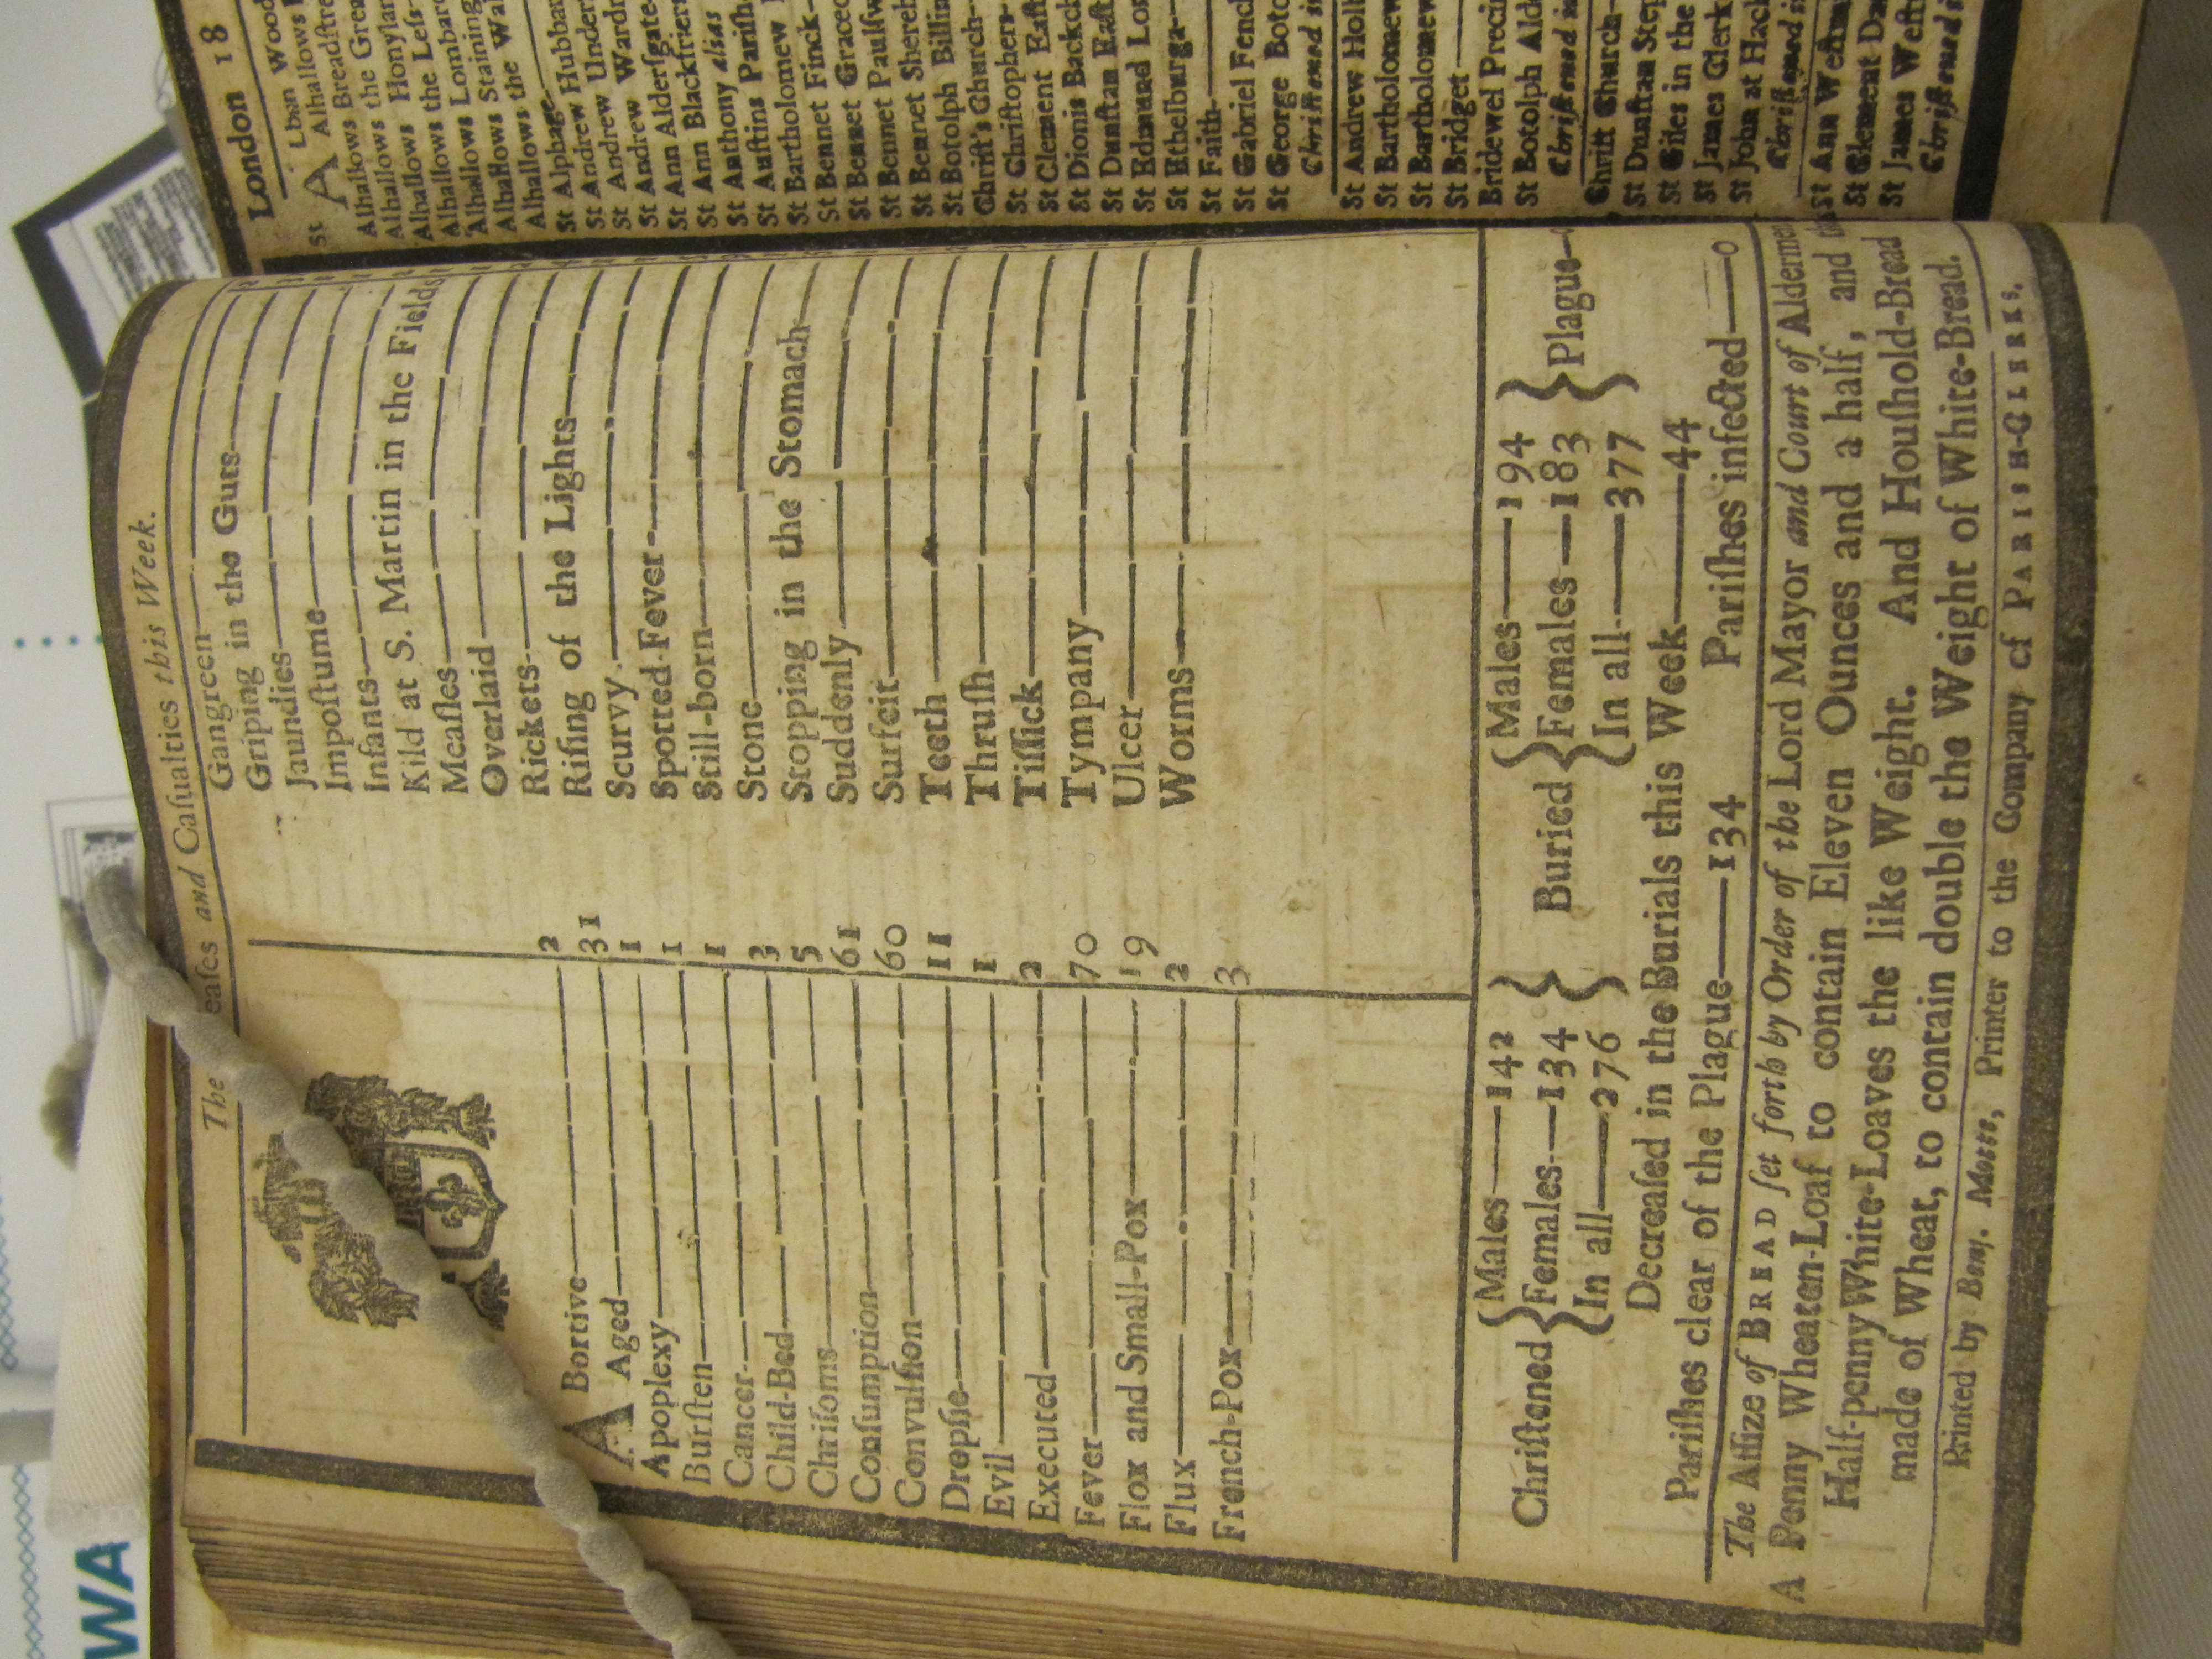 The eaſes and Caſualties this Week.
A Bortive 2
Aged 31
Apoplexy 1
Burſten 1
Cancer 1
Child-Bed 3
Chriſoms 5
Conſumption 61
Convulſion 60
Dropſie 11
Evil 1
Executed 2
Fever 70
Flox and Small-Pox 19
Flux 2
French-Pox 3
Gangreen
Griping in the Guts
Jaundies
Impoſtume
Infants
Kild at S. Martin in the Fields
Meaſles
Overlaid
Rickets
Riſing of the Lights
Scurvy
Spotted-Fever
Still-born
Stone
Stopping in the Stomach
Suddenly
Surfeit
Teeth
Thruſh
Tiſſick
Tympany
Ulcer
Worms
Chriſtened { Males—142 Females—134 In all—276 }
Buried { Males—194 Females—183 In all—377 } Plague—
Decreaſed in the Burials this Week—44
Pariſhes clear of the Plague—134 Pariſhes infected—0
The Aſſize of BREAD ſet forth by Order of the Lord Mayor and Court of Aldermen
A Penny Wheaten-Loaf to contain Eleven Ounces and a half, and
Half-penny White-Loaves the like Weight. And Houſhold-Bread
made of Wheat, to contain double the Weight of White-Bread.
Printed by Benj. Motte, Printer to the Company of PARISH-CLERKS.
London 18
St A Lban Wood
Alhallows
Alhallows Breadſtre
Alhallows the Grea
Alhallows Honylan
Alhallows the Leſs
Alhallows Lombar
Alhallows Staining
Alhallows the Wal
St Alphage
St Andrew Hubbar
St Andrew Under
St Andrew Wardr
St Ann Alderſgate
St Ann Blackfrier
St Anthony alias
St Auſtins Pariſh
St Bartholomew
St Bennet Finck
St Bennet Gracec
St Bennet Paulſw
St Bennet Shereh
St Botolph Billin
Chriſt's Church
St Chriſtophers
St Clement Eaſt
St Dionis Backch
St Dunſtan Eaſt
St Edmund Lo
St Ethelburga
St Faith
St Gabriel Fenc
St George Boto
Chriſtned i
St Andrew Hol
St Bartholomew
St Bartholomew
St Bridget
Bridewel Preci
St Botolph Ald
Chriſtned i
Chriſt Church
St Dunſtan Ste
St Giles in the
St James Clerk
St John at Hac
Chriſtned i
St Ann Weſtm
St Clement Da
St James Weſt
Chriſtned i
WA